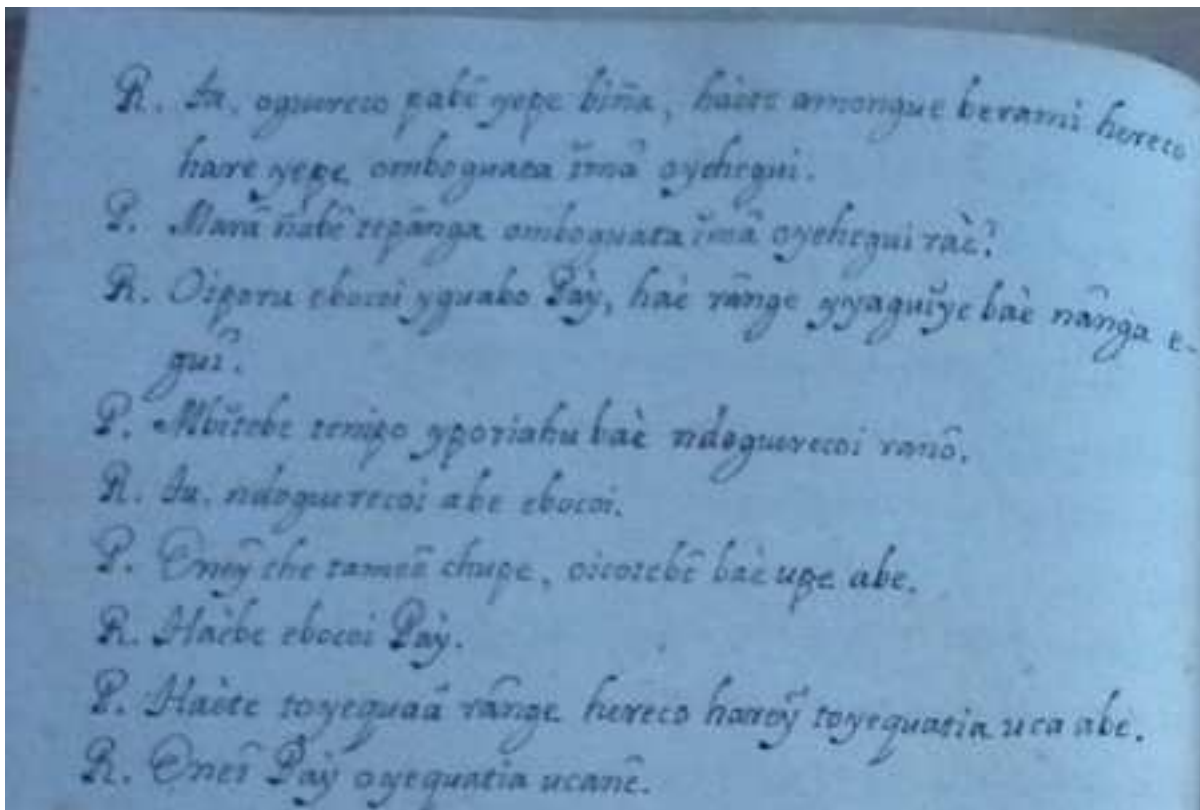 R. Ta. oguereco pabê yepe biña, haète amongue berami hereco
hare yepe omboguata ĭmâ oyehegui.
P. Marâ ñabê tepânga omboguata ĭmâ oyehegui raè?
R. Oiporu ebocoi yguabo Paỳ, haè rânge yyaguĭye baè nânga e-
guî.
P. Mbĭtebe tenipo yporiahu baè ndoguerecoi ranô.
R. Ta. ndoguerecoi abe ebocoi.
P. Oneỹ che tameê chupe, oicotebê baè upe abe.
R. Haèbe ebocoi Paỳ.
P. Haète toyequaâ rânge hereco harey toyequatia uca abe.
R. Oneî Paỳ oyequatia ucanê.